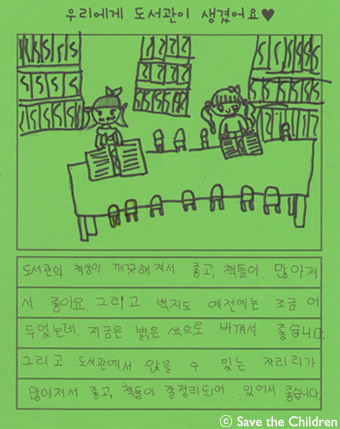 우리에게 도서관이 생겼어요♥
도서관의 책상이 깨끗해져서 좋고, 책들이 많아져
서 좋아요. 그리고 벽지도 예전에는 조금 어
두었는데, 지금은 밝은 색으로 바껴서 좋습니다.
그리고 도서관에서 앉을 수 있는 자리가
많아져서 좋고, 책들이 잘정리되어 있어서 좋습니다.
© Save the Children